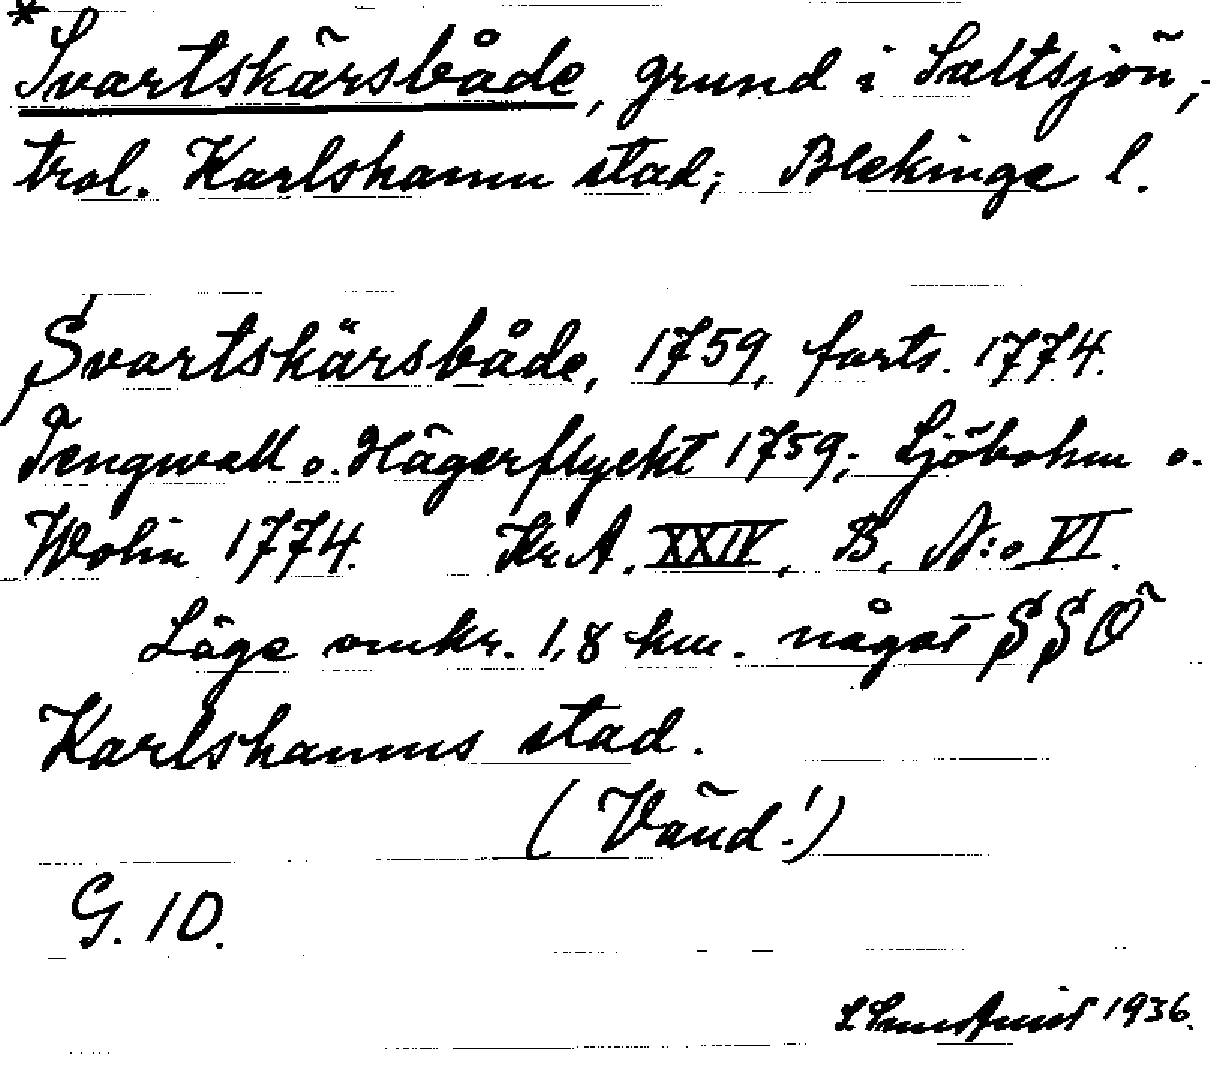 *Svartskärsbåde, grund i Saltsjön,
trol. Karlshamn stad; Blekinge l.
Svartskärsbåde, 1759, forts. 1774.
Tengwall o. Hägerflyckt 1759; Ljöbohm o.
Wolin 1774. Kr. A. XXIV, B, N:o VI.
Läge omkr. 1,8 km. något SSÖ
Karlshamns stad.
(Vänd!)
G. 10.
1936.